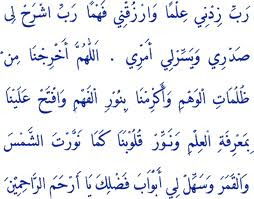 رَبِّ زِدْنِي عِلْمًا وَارْزُقْنِي فَهْمًا رَبِّ اشْرَحْ لِي
صَدْرِي وَيَسِّرْلِي أَمْرِي . اَللّٰهُمَّ أَخْرِجْنَا مِنْ
ظُلُمَاتِ الْوَهْمِ وَأَكْرِمْنَا بِنُوْرِ الْفَهْمِ وَافْتَحْ عَلَيْنَا
بِمَعْرِفَةِ الْعِلْمِ وَنَوِّرْ قُلُوْبَنَا كَمَا نَوَّرْتَ الشَّمْسَ
وَالْقَمَرَ وَسَهِّلْ لِي أَبْوَابَ فَضْلِكَ يَا أَرْحَمَ الرَّاحِمِيْنَ